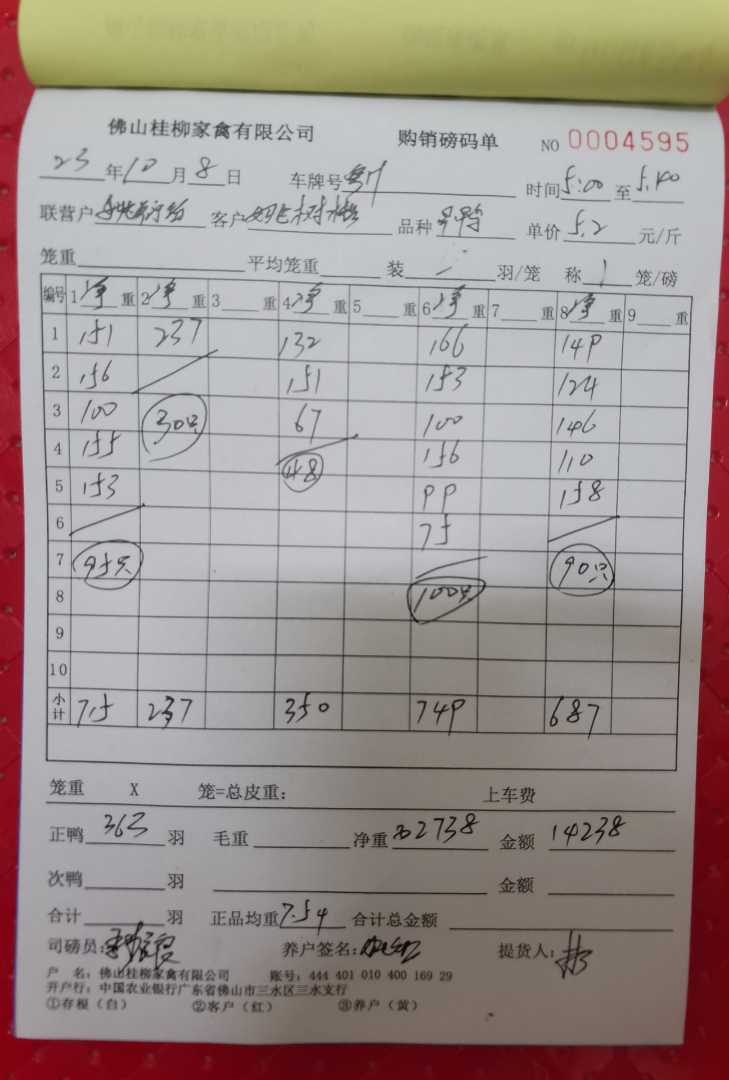 佛山桂柳家禽有限公司 购销磅码单 NO 0004595
23年10月8日 车牌号 时间5:00至5:40
联营户 客户 品种 单价5.2元/斤
笼重 平均笼重 装 羽/笼 称1笼/磅
编号 1净重 2净重 3 重 4净重 5 重 6净重 7 重 8净重 9 重
1 151 237 132 166 149
2 156 151 153 124
3 100 30只 67 100 146
4 155 48 156 110
5 153 99 158
6 75
7 95只 90只
8 100只
9
10
小计 715 237 350 749 687
笼重 X 笼=总皮重: 上车费
正鸭363羽 毛重 净重2738 金额14238
次鸭 羽 金额
合计 羽 正品均重7.54 合计总金额
司磅员: 养户签名: 提货人:
户 名: 佛山桂柳家禽有限公司 账号: 444 401 010 400 169 29
开户行: 中国农业银行广东省佛山市三水区三水支行
①存根(白) ②客户(红) ③养户(黄)